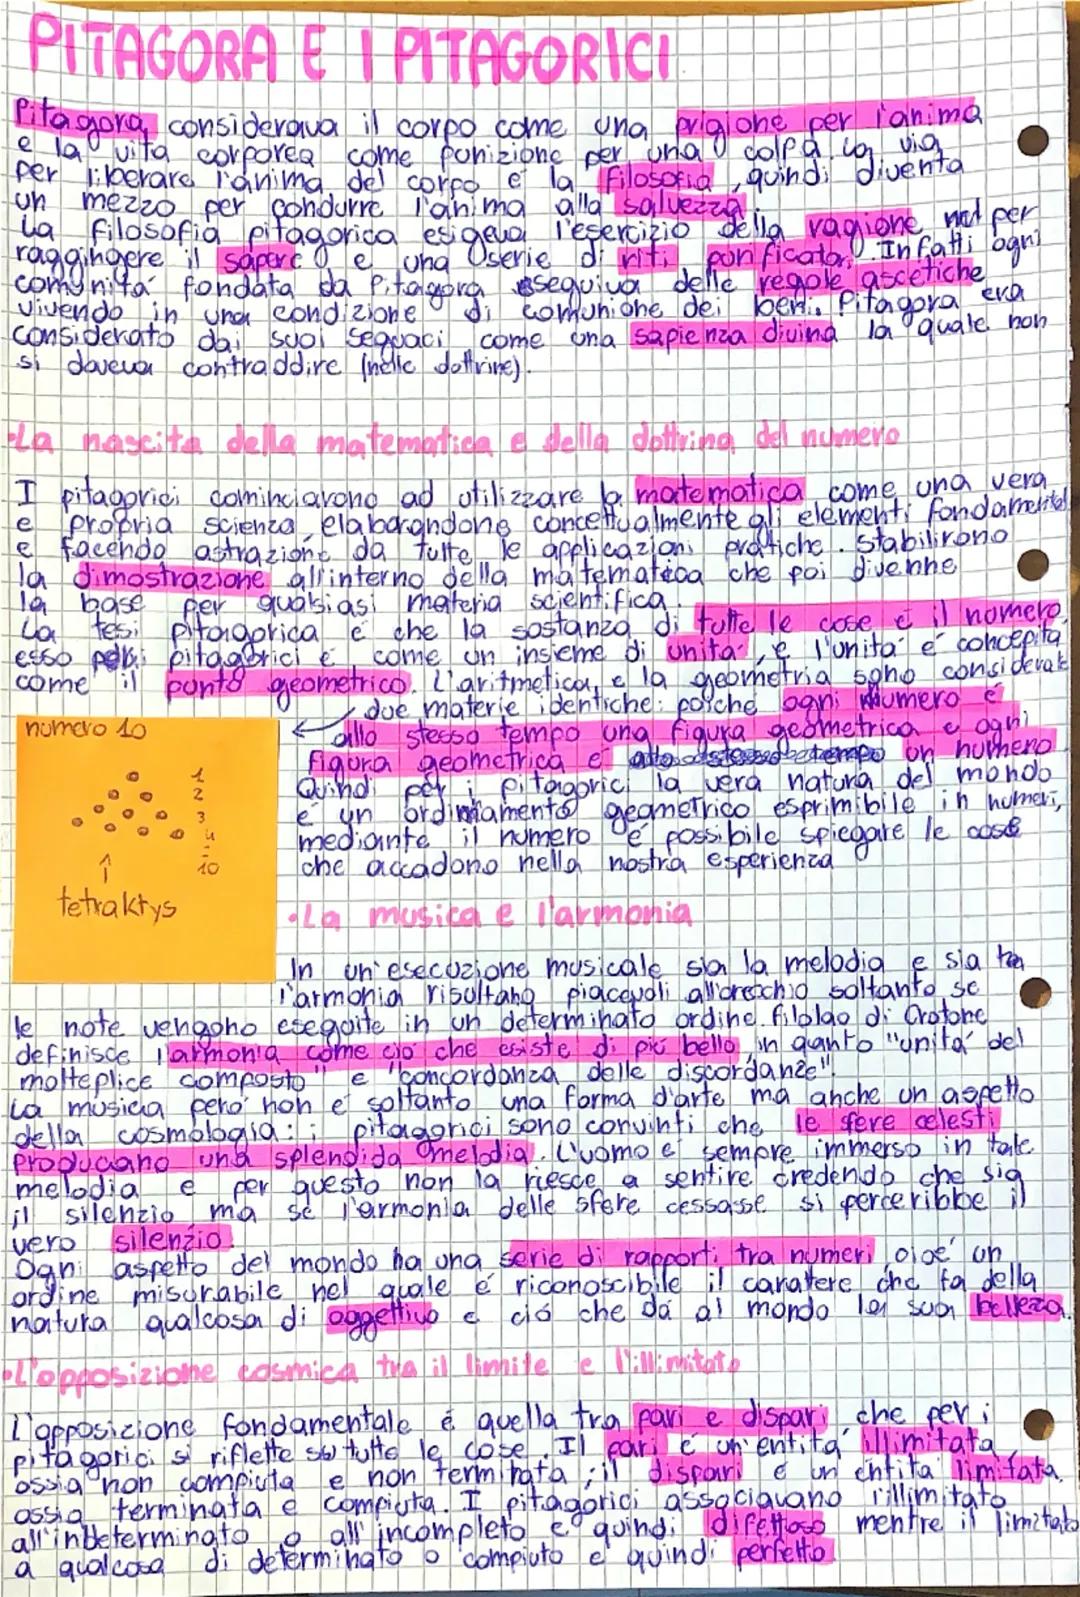 PITAGORA E I PITAGORICI
Pitagora considerava il corpo come una prigione per l'anima
e la vita corporea come punizione per una colpa. La via
per liberare l'anima del corpo é la filosofia, quindi diventa
un mezzo per condurre l'anima alla salvezza.
La filosofia pitagorica esigeva l'esercizio della ragione per
raggingere il sapere e una serie di riti purificatori. Infatti ogni
comunitá fondata da Pitagora eseguiva delle regole ascetiche
vivendo in una condizione di comunione dei beni. Pitagora era
considerato dai suoi seguaci come una sapienza divina la quale non
si doveva contraddire (nelle dottrine).
•La nascita della matematica e della dottrina del numero
I pitagorici cominciarono ad utilizzare la matematica come una vera
e propria scienza elaborandone concettualmente gli elementi fondamentali
e facendo astrazione da tutte le applicazioni pratiche. Stabilirono
la dimostrazione all'interno della matematica che poi divenne
la base per qualsiasi materia scientifica.
La tesi pitagorica é che la sostanza di tutte le cose é il numero,
esso per i pitagorici é come un insieme di unitá, e l'unitá é concepita
come il punto geometrico. L'aritmetica e la geometria sono considerate
due materie identiche: poiche ogni numero é
allo stesso tempo una figura geometrica e ogni
figura geometrica é un numero
Quindi per i pitagorici la vera natura del mondo
é un ordinamento geometrico esprimibile in numeri,
mediante il numero é possibile spiegare le cose
che accadono nella nostra esperienza
numero 10
1
2
3
4
-
10
tetraktys
•La musica e l'armonia
In un'esecuzione musicale sia la melodia e sia
l'armonia risultano piacevoli all'orecchio soltanto se
le note vengono eseguite in un determinato ordine. filolao di Crotone
definisce l'armonia come ció che esiste di piú bello in quanto "unitá del
molteplice composto" e "concordanza delle discordanze".
La musica peró non é soltanto una forma d'arte ma anche un aspetto
della cosmologia: i pitagorici sono convinti che le sfere celesti
producano una splendida melodia. L'uomo é sempre immerso in tale
melodia e per questo non la riesce a sentire credendo che sia
il silenzio ma se l'armonia delle sfere cessasse si perceribbe il
vero silenzio.
Ogni aspetto del mondo ha una serie di rapporti tra numeri, cioé un
ordine misurabile nel quale é riconoscibile il caratere che fa della
natura qualcosa di oggettivo e ció che dá al mondo la sua bellezza.
•L'opposizione cosmica tra il limite e l'illimitato
L'opposizione fondamentale é quella tra pari e dispari che per i
pitagorici si riflette su tutte le cose. Il pari é un'entitá illimitata,
ossia non compiuta e non terminata; il dispari é un entitá limitata,
ossia terminata e compiuta. I pitagorici associavano l'illimitato
all'indeterminato o all'incompleto e quindi difettoso mentre il limitato
a qualcosa di determinato o compiuto e quindi perfetto